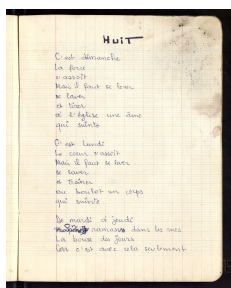 HUIT
C'est dimanche
La force
s'assoit
Mais il faut se lever
se laver
et tirer
à l'église une âme
qui suinte
C'est lundi
Le coeur s'assoit
Mais il faut se lever
se laver
et traîner
au boulot un corps
qui suinte
De mardi à jeudi
ramasse dans les rues
La bouse des jours
Car c'est avec cela seulement